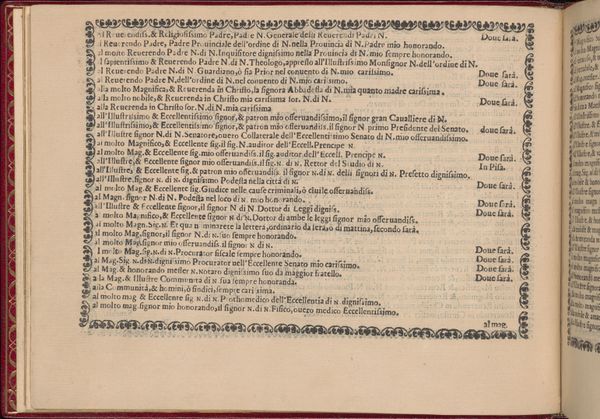 al Reuerendiss. & Religiosissimo Padre, Padre N. Generale della Reuerendi Padri N. Doue sarà.
al Reuerendo Padre, Padre Prouinciale dell'ordine di N. nella Prouincia di N. Padre mio honorando.
al molto Reuerendo Padre N. di N. Inquisitore dignissimo nella Prouincia di N. mio sempre honorando.
al sapientissimo & Eccellentissimo Padre N. di N. Theologo, appresso all'Illustrissimo Monsignor N. dell'ordine di N.
al Reuerendo Padre N. di N. Guardiano, ò sia Prior nel conuento di N. mio carissimo. Doue sarà.
al Reuerendo Padre N. dell'ordine di N. nel conuento di N. mio carissimo. Doue sarà.
alla molto Magnifica, & Reuerenda in Christo, la signora Abbadessa di N. mia quanto madre carissima.
alla molto nobile, & Reuerenda in Christo mia carissima sor. N. di N. Doue sarà.
alla Reuerenda in Christo sor. N. di N. mia carissima
all'Illustrissimo & Eccellentissimo signor, & patron mio osseruandissimo, il signor gran Caualliere di N.
all'Illustrissimo, & Eccellentissimo signor, & patron mio osseruandiss. il signor N primo Presidente del Senato. doue sarà.
all'Illustre signor N. di N. Senatore, ouero Collaterale dell'Eccellentissimo Senato di N. mio osseruandissimo.
al molto Magnifico, & Eccellente sig. il sig. N. auditor dell'Eccell. Prencipe N.
al molto Mag. & Eccellente sig. mio osseruandiss. il sig. auditor dell'Eccell. Prencipe N. Doue sarà.
all'Illustre, & Eccellente signor mio osseruandiss. il sig. N. di N. Rettor del Studio di N. In Pisa.
all'Illustre, & Eccellente sig. & patron mio osseruandiss. il signor N. di N. delli signori di N. Prefetto dignissimo.
all'Illustre. signor N. di N. dignissimo Podesta nella città di N. Doue sarà.
al molto Mag. & Eccellente sig. Giudice nelle cause criminali, ò ciuile osseruandiss.
al Magn. signor N di N. Podestà nel loco di N. mio honorando. Doue sarà.
all'Illustre & Eccellente signor, il signor N di N Dottor di Leggi digniss. Doue sarà.
al molto Magnifico, & Eccellente signor N. di N. Dottor di ambe le leggi signor mio osseruandiss.
al molto Magn. Sig. N. Et qua la lettera, ordinario da seruar di mattina, secondo sarà.
al molto Mag. signor, il signor N. di N. suo sempre honorando.
al molto Mag. signor mio osseruandiss. il signor N. di N. Doue sarà.
l molto Mag. sig. N. di N. Procurator fiscale sempre honorando. Doue sarà.
al Mag. Sig. N. di N. dignissimo Procurator nell'Eccellente Senato mio carissimo. Doue sarà.
al Mag. & honorando messer N. Notaro dignissimo suo da maggior fratello. Doue sarà.
alla Mag. & Illustre Communità di N. sua sempre honoranda.
alla Communità, & homini, ò sindici, sempre carissima.
al molto mag & Eccellente sig N. di N. Prothomedico dell'Eccellentia di N. dignissimo.
al molto mag. signor mio honorando, il signor N. di N. Fisico, ouero medico Eccellentissimo.
al mag.